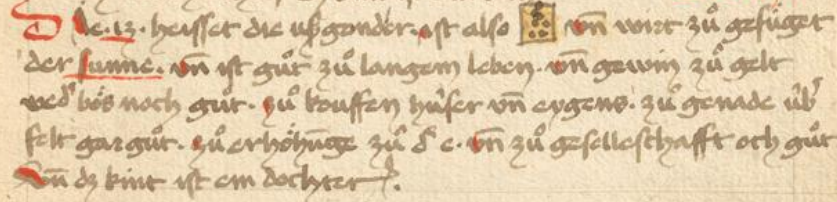 Die .13. heisset die uszgonder. ist also vn̄ wirt zů gefůget
der sunne. vn̄ ist gůt zů langem leben. vn̄ gewin zů gelt
wed' bős noch gůt. zů kouffen hůser vn̄ eygens. zů genade úb'
felt gar gůt. zů erhőhūge zů d' e. vn̄ zů geselleschafft och gůt
vn̄ dz kint ist ein dochter